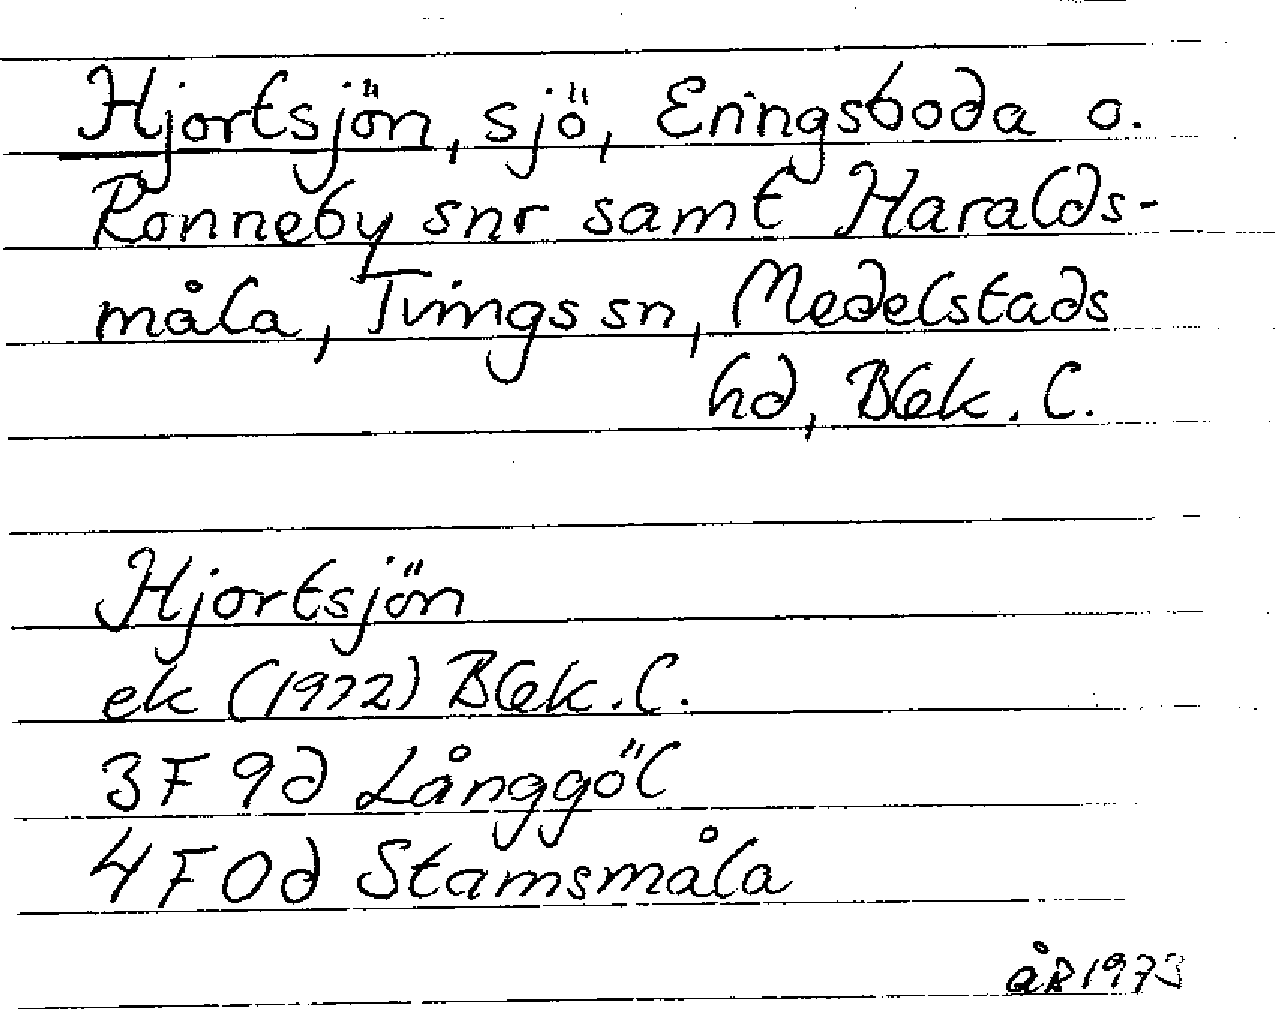 Hjortsjön, sjö, Eringsboda o.
Ronneby snr samt Haralds-
måla, Tvings sn, Medelstads
hd, Blek. l.
Hjortsjön
ek (1972) Blek. l.
3F 9d Långgöl
4F 0d Stamsmåla
åR 1973